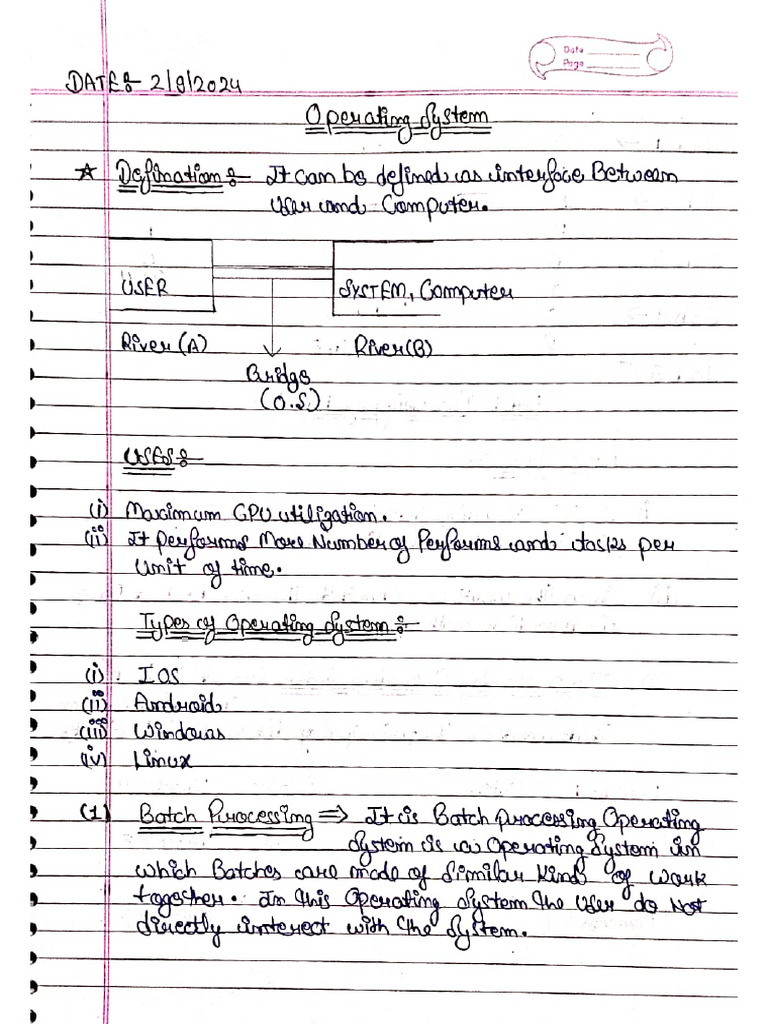 Date
Page
DATE:- 2/9/2024
Operating System
☆ Defination:- It can be defined as interface Between
User and Computer.
USER
SYSTEM, Computer
River (A)
River (B)
Bridge
(O.S)
USES:-
(i) Maximum CPU utilization.
(ii) It performs More Number of Performs and tasks per
Unit of time.
Types of Operating System:-
(i) IOS
(ii) Android
(iii) Windows
(iv) Linux
(1) Batch Processing => It is Batch processing Operating
System is a Operating System in
which Batches are made of similar kind of work
together. In this Operating System the User do Not
directly interect with the System.